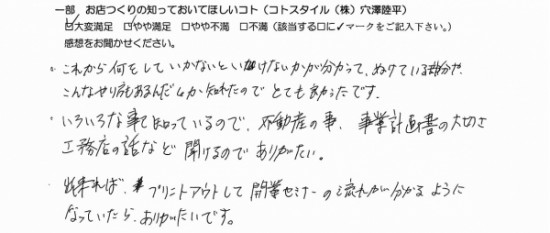 一部 お店つくりの知っておいてほしいコト（コトスタイル（株）穴澤陸平）
☑大変満足 ☑やや満足 □やや不満 □不満（該当する□に✓マークをご記入下さい。）
感想をお聞かせください。
・これから何をしていかないといけないかが分かって、ぬけている部分や、
こんなやり方もあるんだとか知れたのでとても良かったです。
・いろいろな事を知っているので、不動産の事、事業計画書の大切さ
工務店の話など聞けるのでありがたい。
・出来れば、プリントアウトして開業セミナーの流れが分かるように
なっていたら、ありがたいです。